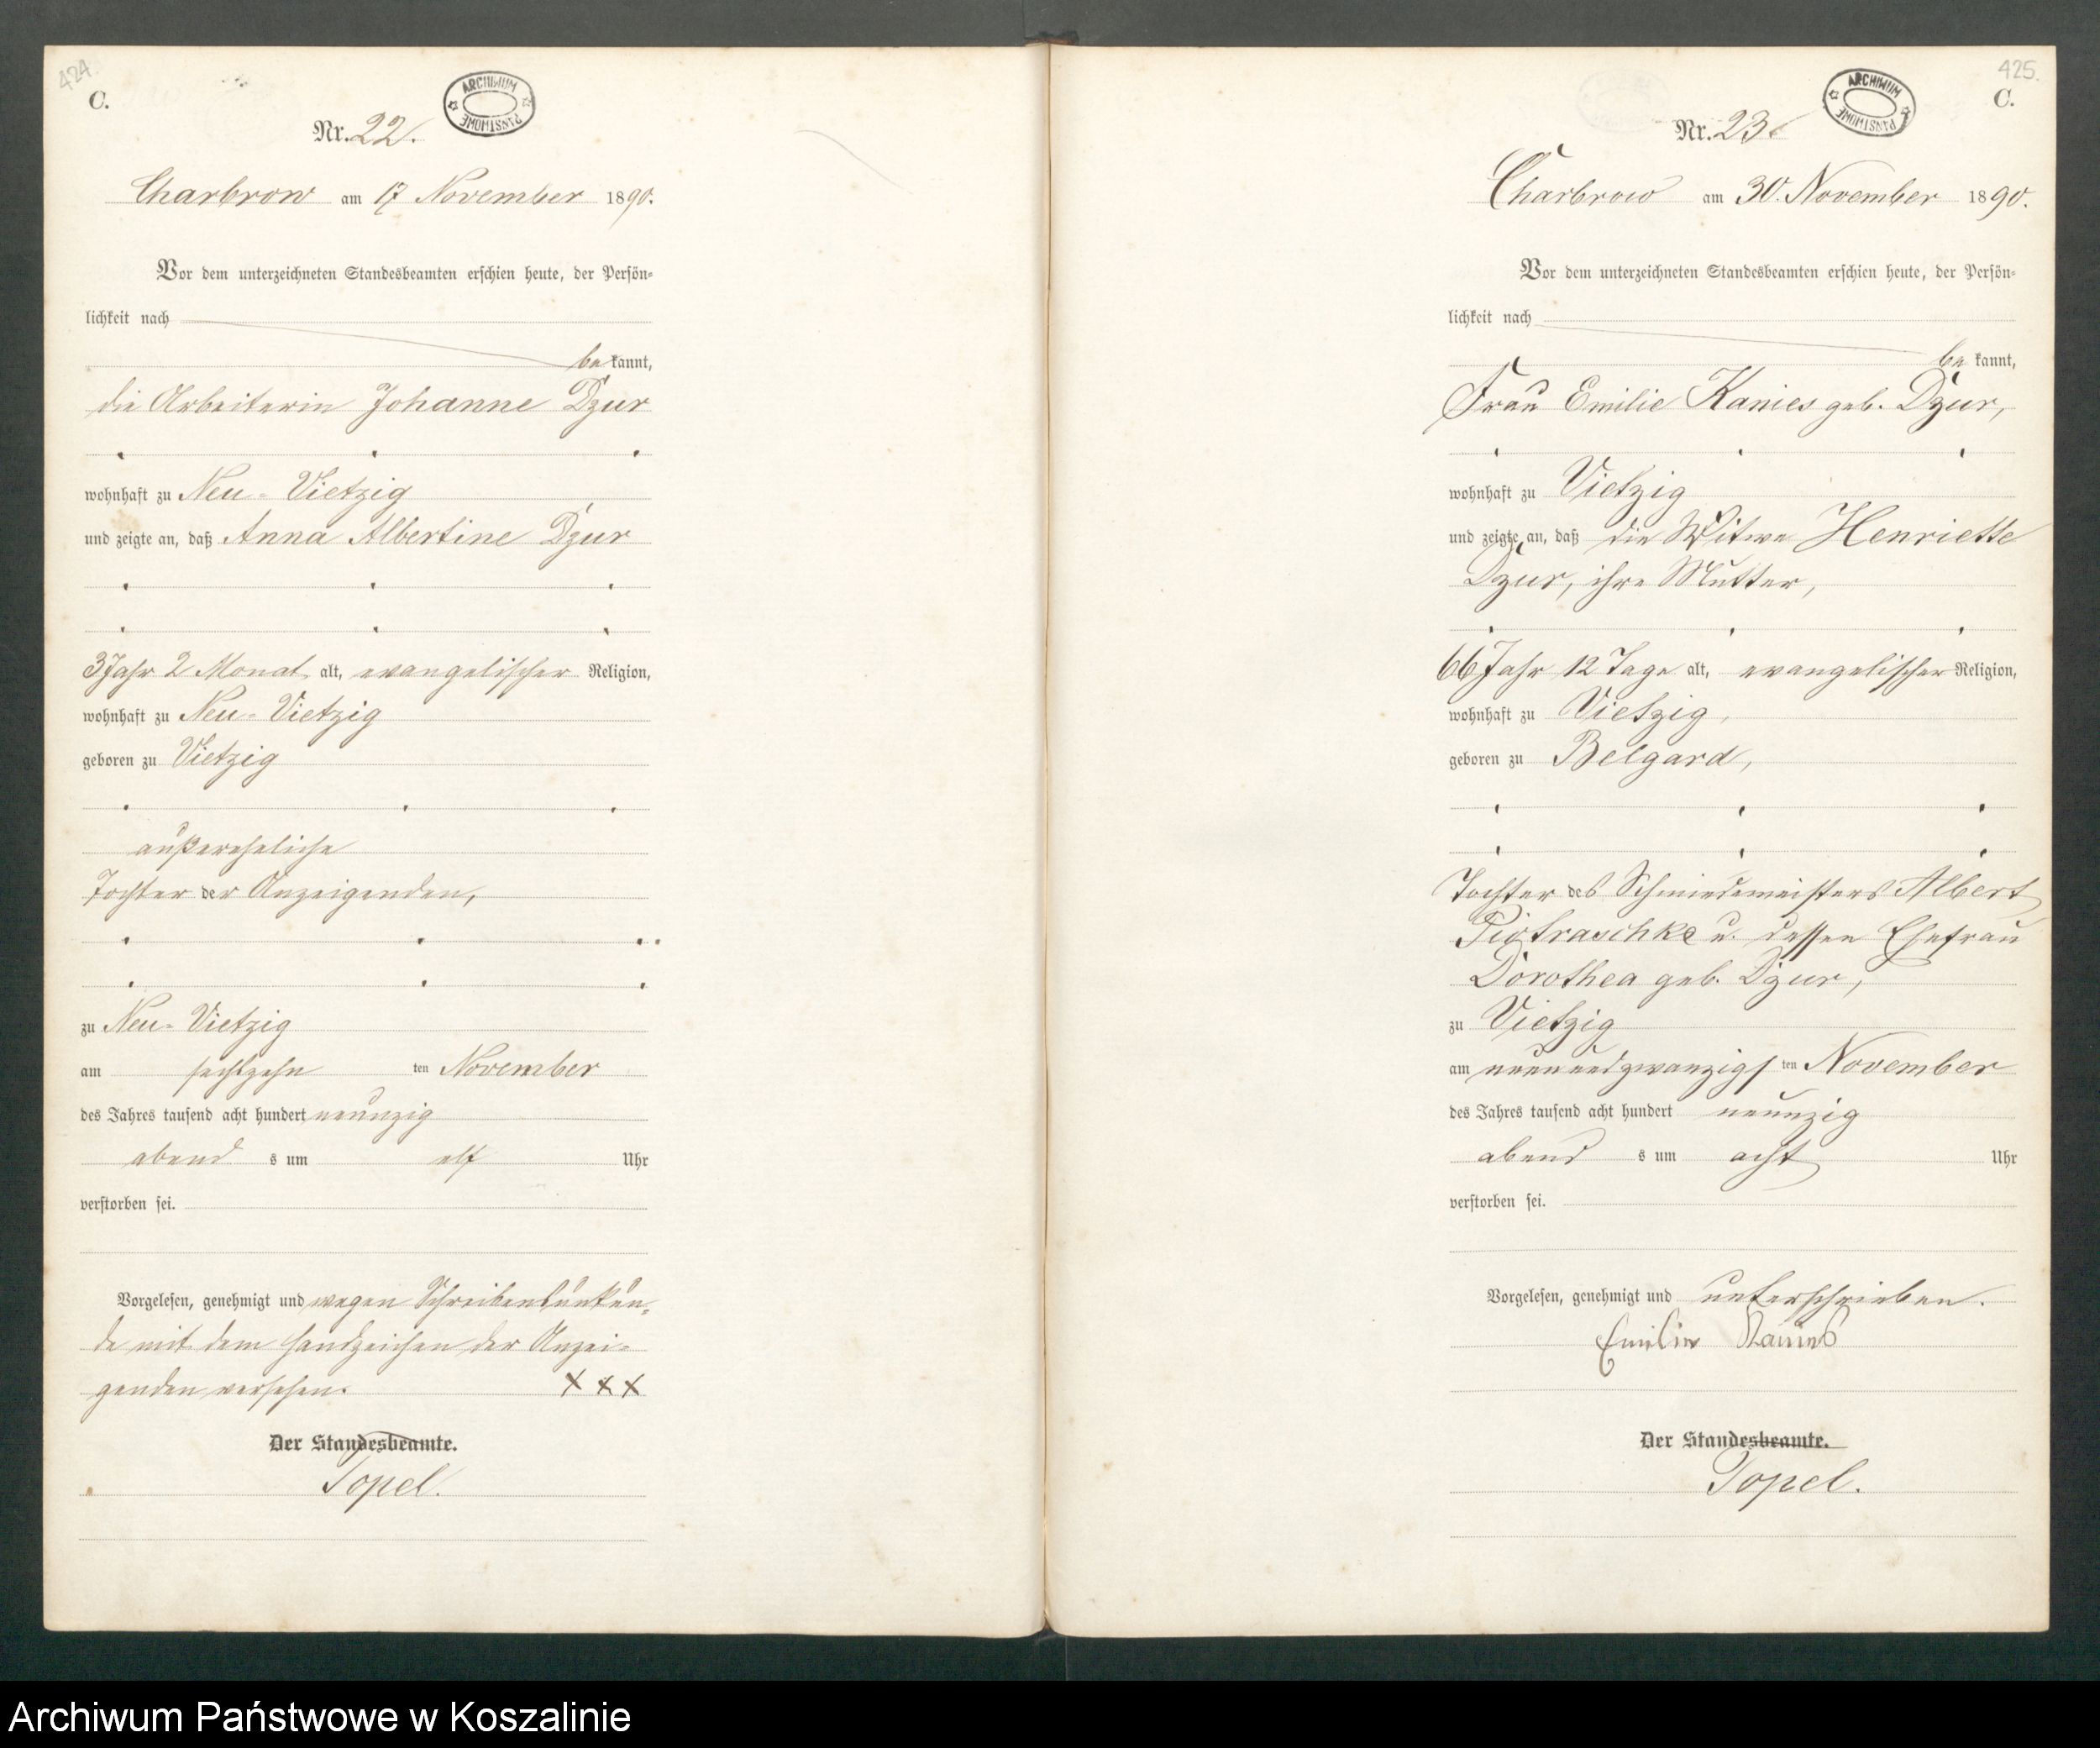 424.
C.
ARCHIWUM
PAŃSTWOWE
Nr. 22.
Charbrow am 17 November 1890.
Vor dem unterzeichneten Standesbeamten erschien heute, der Persön-
lichkeit nach
be kannt,
die Arbeiterin Johanne Dzur
wohnhaft zu Neu-Vietzig
und zeigte an, daß Anna Albertine Dzur
3 Jahr 2 Monat alt, evangelischer Religion,
wohnhaft zu Neu-Vietzig
geboren zu Vietzig
außereheliche
Tochter der Anzeigenden,
zu Neu-Vietzig
am sechszehn ten November
des Jahres tausend acht hundert neunzig
abend s um elf Uhr
verstorben sei.
Vorgelesen, genehmigt und wegen Schreibensunkun-
de mit dem Handzeichen der Anzei-
genden versehen. XXX
Der Standesbeamte.
Topel.
425.
C.
ARCHIWUM
PAŃSTWOWE
Nr. 23.
Charbrow am 30. November 1890.
Vor dem unterzeichneten Standesbeamten erschien heute, der Persön-
lichkeit nach
be kannt,
Frau Emilie Kanies geb. Dzur,
wohnhaft zu Vietzig
und zeigte an, daß die Witwe Henriette
Dzur, ihre Mutter,
66 Jahr 12 Tage alt, evangelischer Religion,
wohnhaft zu Vietzig,
geboren zu Belgard,
Tochter des Schmiedemeisters Albert
Piotraschke u. dessen Ehefrau
Dorothea geb. Dzur,
zu Vietzig
am neunundzwanzigs ten November
des Jahres tausend acht hundert neunzig
abend s um acht Uhr
verstorben sei.
Vorgelesen, genehmigt und unterschrieben.
Emilie Kanies
Der Standesbeamte.
Topel.
Archiwum Państwowe w Koszalinie